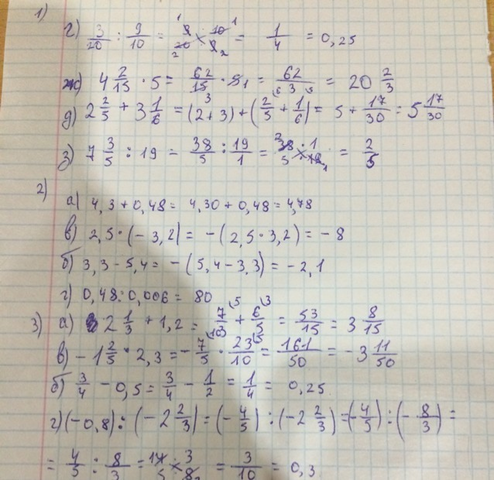 1)
г) 3/20 : 9/10 = 3/20 × 10/9 = 1/4 = 0,25
ж) 4 2/15 · 5 = 62/15 · 5 = 62/3 = 20 2/3
д) 2 2/5 + 3 1/6 = (2+3) + (2/5 + 1/6) = 5 + 17/30 = 5 17/30
з) 7 3/5 : 19 = 38/5 : 19/1 = 38·1/5·19 = 2/5
2)
а) 4,3 + 0,48 = 4,30 + 0,48 = 4,48
в) 2,5 · (-3,2) = -(2,5 · 3,2) = -8
б) 3,3 - 5,4 = -(5,4 - 3,3) = -2,1
г) 0,48 : 0,006 = 80
3) а) 2 1/3 + 1,2 = 7/3 + 6/5 = 53/15 = 3 8/15
в) -1 2/5 · 2,3 = -7/5 · 23/10 = 161/50 = -3 11/50
б) 3/4 - 0,5 = 3/4 - 1/2 = 1/4 = 0,25
г) (-0,8) : (-2 2/3) = (-4/5) : (-2 2/3) = (-4/5) : (-8/3) =
= 4/5 : 8/3 = 4/5 · 3/8 = 3/10 = 0,3